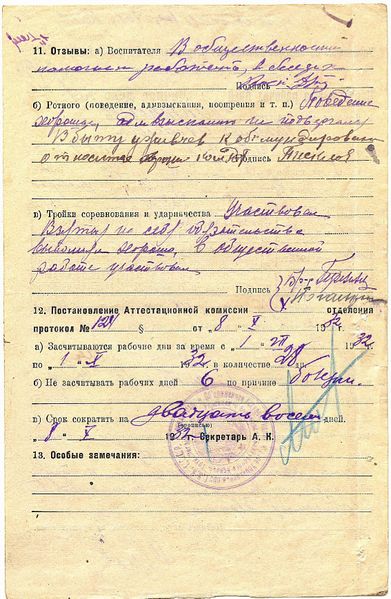 11. Отзывы: а) Воспитателя В общественности
помогает работать, в беседах
Подпись
б) Ротного (поведение, адмвзыскания, поощрения и т. п.) Поведение
хорошее, адмвзысканию не подвергался
В быту уживчив к обмундированию
относится Подпись
в) Тройки соревнования и ударничества Участвовал
Взятые на себя обязательства
выполнял хорошо. В общественной
работе участвовал
Подпись
12. Постановление Аттестационной комиссии отделения
протокол № 124 § от „ 8 “ V 1932 г.
а) Засчитываются рабочие дни за время с „ 1 “ III 1932 г.
по „ 1 “ V 32 г. в количестве 28 дн.
б) Не засчитывать рабочих дней 6 по причине болезни.
в) Срок сократить на двадцать восемь дней.
(прописью)
„ 8 “ V 1932 г. Секретарь А. К.
13. Особые замечания: